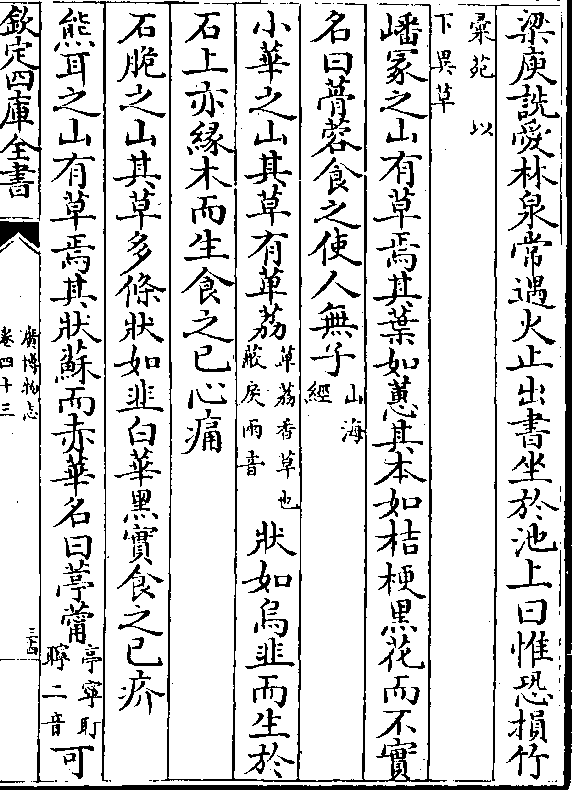 梁庾詵愛林泉常遇火止出書坐於池上曰惟恐損竹
彚苑 以
下異草
嶓冢之山有草焉其葉如蕙其本如桔梗黑花而不實
名曰蓇蓉食之使人無子山海經
小華之山其草有萆荔萆荔香草也蔽戾兩音狀如烏韭而生於
石上亦緣木而生食之已心痛
石脆之山其草多條狀如韭白華黑實食之已疥
熊耳之山有草焉其狀蘇而赤華名曰葶薴亭寧耵聹二音可
欽定四庫全書
廣博物志
卷四十三
三四